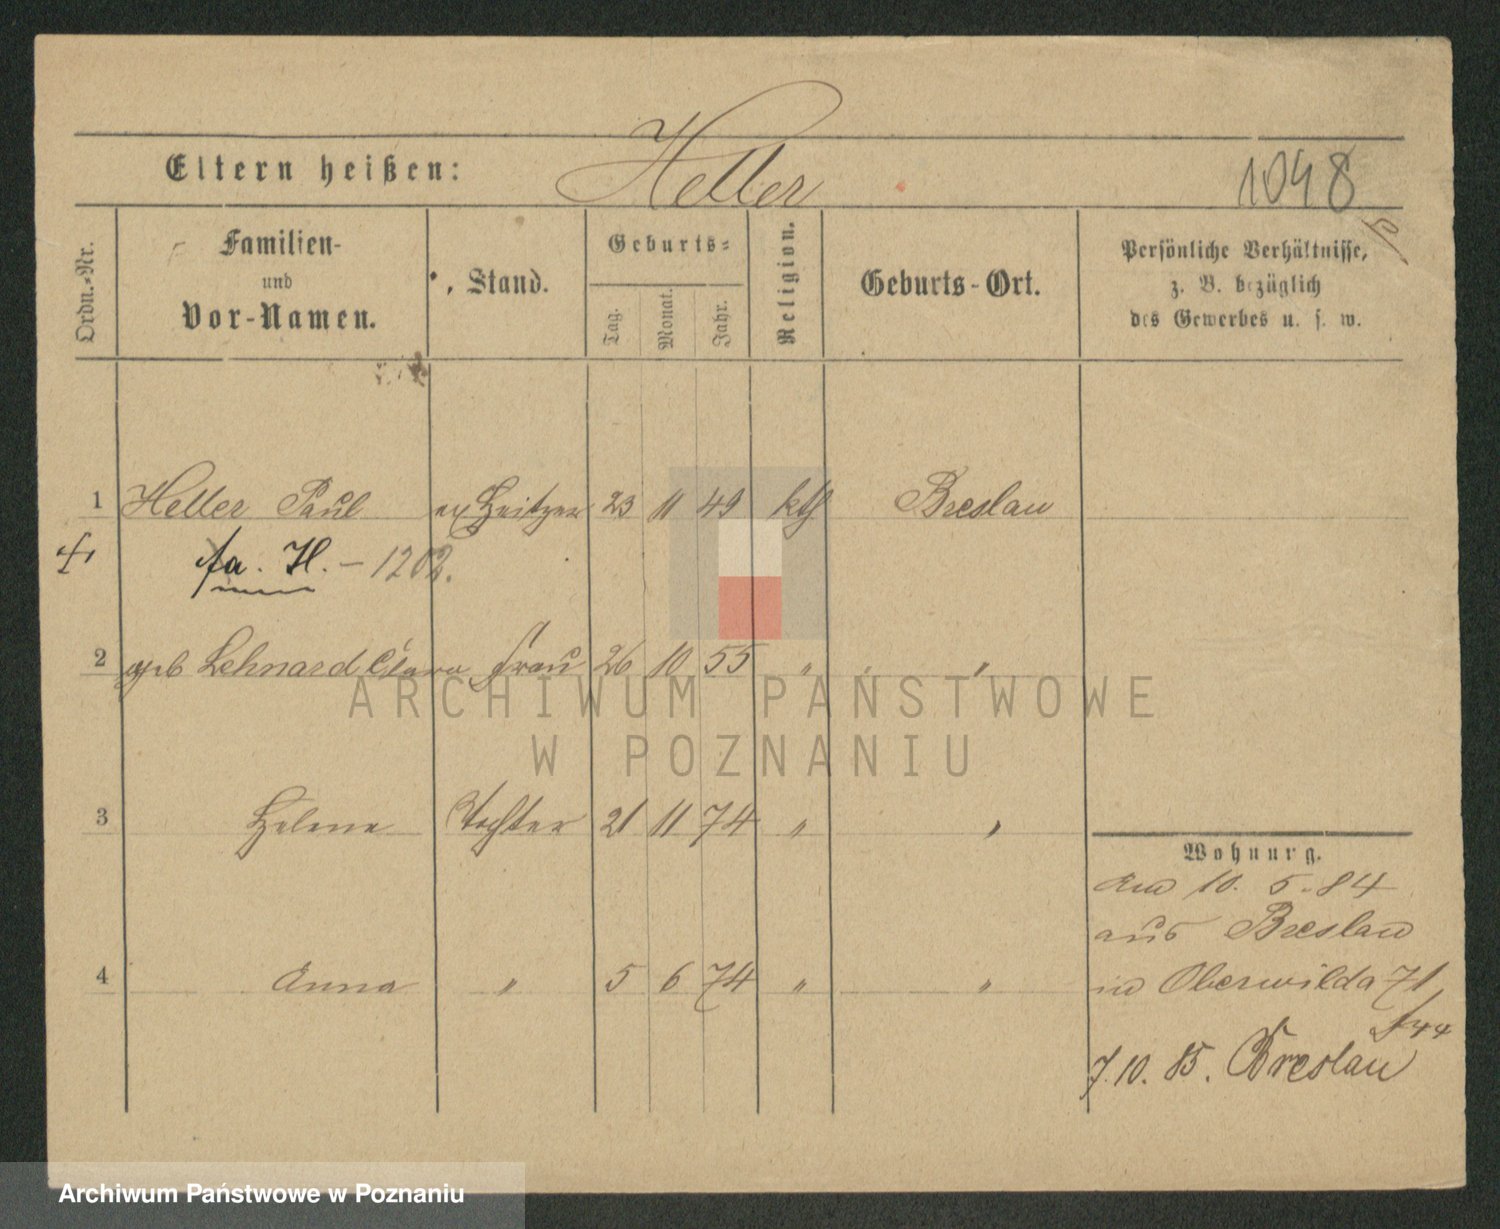 Eltern heißen: Heller 1048
Ordn.-Nr.
Familien-
und
Vor-Namen.
Stand.
Geburts-
Tag.
Monat.
Jahr.
Religion.
Geburts-Ort.
Persönliche Verhältnisse,
z. B. bezüglich
des Gewerbes u. s. w.
1 Heller Paul Heitzer 23 11 49 kth Breslau
fa. H. - 1202.
2 geb Lehnard Clara Frau 26 10 55 " "
ARCHIWUM PAŃSTWOWE
W POZNANIU
3 Helene Tochter 21 11 74 " "
4 Anna " 5 6 74 " "
Wohnung.
am 10. 5. 84
aus Breslau
in Oberwilda 71
7.10.85. Breslau
Archiwum Państwowe w Poznaniu